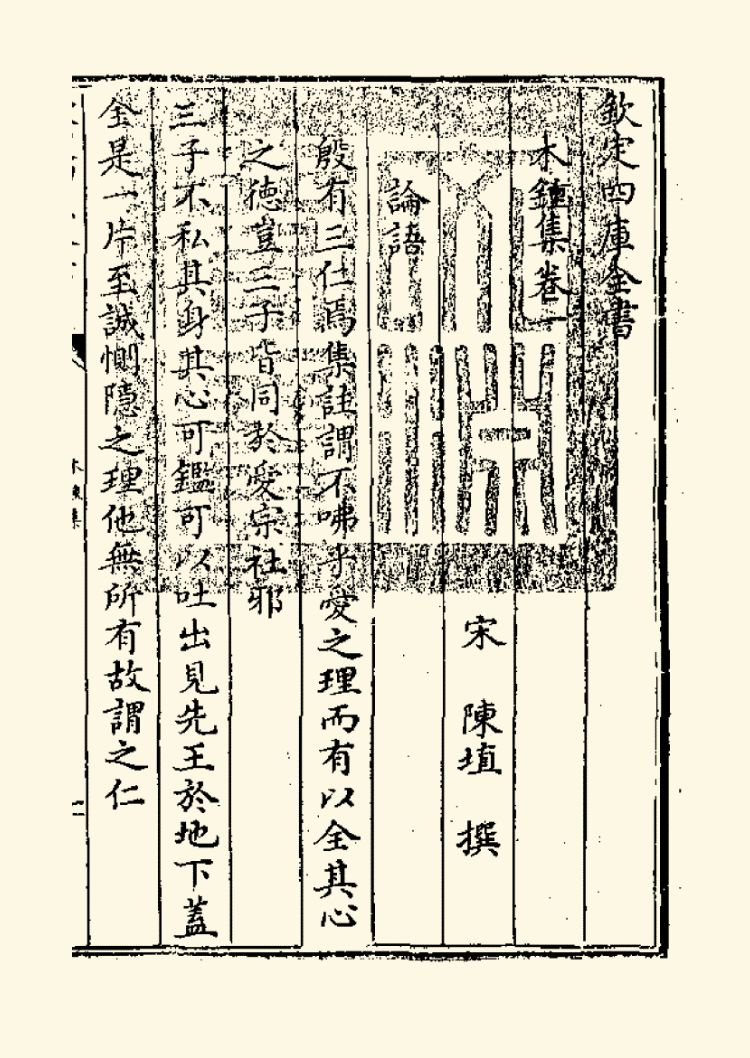 欽定四庫全書
木鍾集卷一
宋 陳埴 撰
論語
殷有三仁焉集註謂不咈乎愛之理而有以全其心
之徳豈三子皆同於愛宗社邪
三子不私其身其心可鑑可以吐出見先王於地下蓋
全是一片至誠惻隠之理他無所有故謂之仁